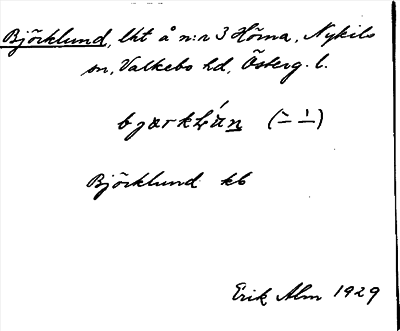 Björklund, lht å n:r 3 Höma, Nykils
sn, Valkebo hd, Österg. l.
Björklund kb
Erik Alm 1929